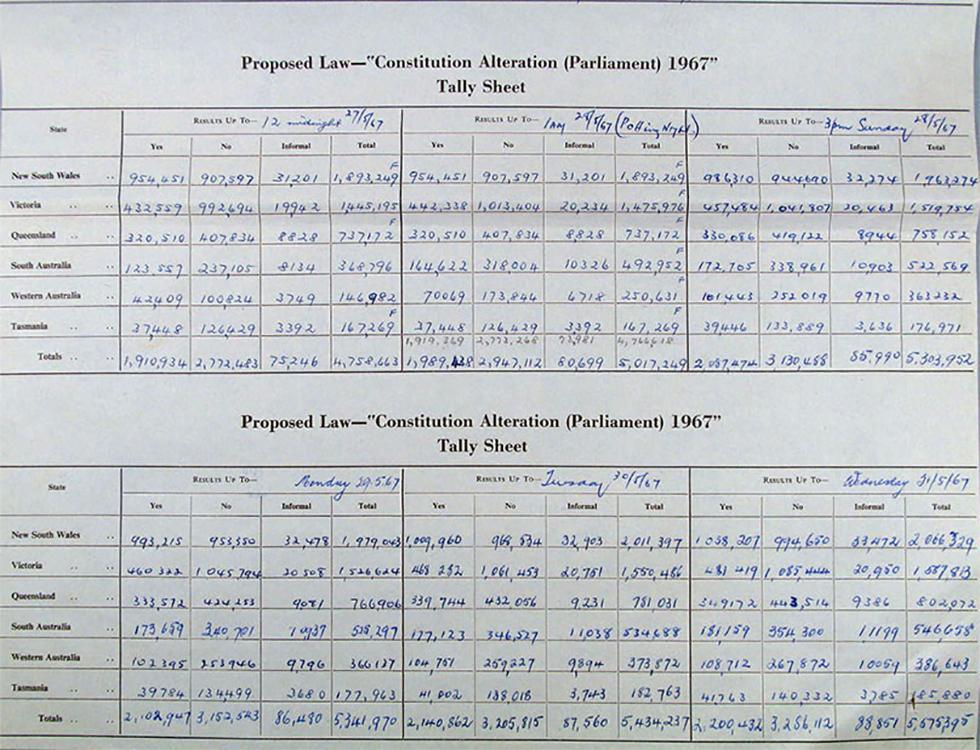 Proposed Law—"Constitution Alteration (Parliament) 1967"
Tally Sheet
State RESULTS UP TO— 12 midnight 27/5/67 RESULTS UP TO— 1AM 28/5/67 (Polling Night) RESULTS UP TO— 3pm Sunday 28/5/67
Yes No Informal Total Yes No Informal Total Yes No Informal Total
F F
New South Wales .. 954,451 907,597 31,201 1,893,249 954,451 907,597 31,201 1,893,249 986,310 944,690 32,274 1,963,274
F
Victoria .. 432,559 992,694 19942 1,445,195 442,338 1,013,404 20,234 1,475,976 457,484 1,041,807 20,463 1,519,754
F F
Queensland .. 320,510 407,834 8828 737,172 320,510 407,834 8,828 737,172 330,086 419,122 8944 758,152
F
South Australia .. 123,557 237,105 8134 368,796 164,622 318,004 10326 492,952 172,705 338,961 10903 522,569
F
Western Australia .. 42409 100824 3749 146,982 70069 173,844 6718 250,631 101,443 252,019 9770 363232
F F
Tasmania .. 37448 126429 3392 167269 37,448 126,429 3,392 167,269 39,446 133,889 3,636 176,971
1,919,369 2,773,268 73,981 4,766,618
Totals .. .. 1,910,934 2,772,483 75,246 4,758,663 1,989,438 2,947,112 80,699 5,017,249 2,087,474 3,130,488 85,990 5,303,952
Proposed Law—"Constitution Alteration (Parliament) 1967"
Tally Sheet
State RESULTS UP TO— Monday 29.5.67 RESULTS UP TO— Tuesday 30/5/67 RESULTS UP TO— Wednesday 31/5/67
Yes No Informal Total Yes No Informal Total Yes No Informal Total
New South Wales .. 993,215 953,350 32,478 1,979,043 1,009,960 968,534 32,903 2,011,397 1,038,207 994,650 33,472 2,066,329
Victoria .. 460,322 1,045,794 20508 1,526,624 468,282 1,061,453 20,751 1,550,486 481,419 1,085,444 20,950 1,587,813
Queensland .. 333,572 424,253 9081 766906 339,744 432,056 9,231 781,031 349172 443,514 9386 802,072
South Australia .. 173,659 340,701 10937 525,297 177,123 346,527 11,038 534,688 181159 354,300 11199 546,658
Western Australia .. 102395 253946 9,796 366137 104,751 259,227 9894 373,872 108,712 267,872 10059 386,643
Tasmania .. 39784 134499 3680 177,963 41,002 138,018 3,743 182,763 41763 140,332 3,785 185,880
Totals .. .. 2,102,947 3,152,543 86,480 5,341,970 2,140,862 3,205,815 87,560 5,434,237 2,200,432 3,286,112 88,851 5,575,395